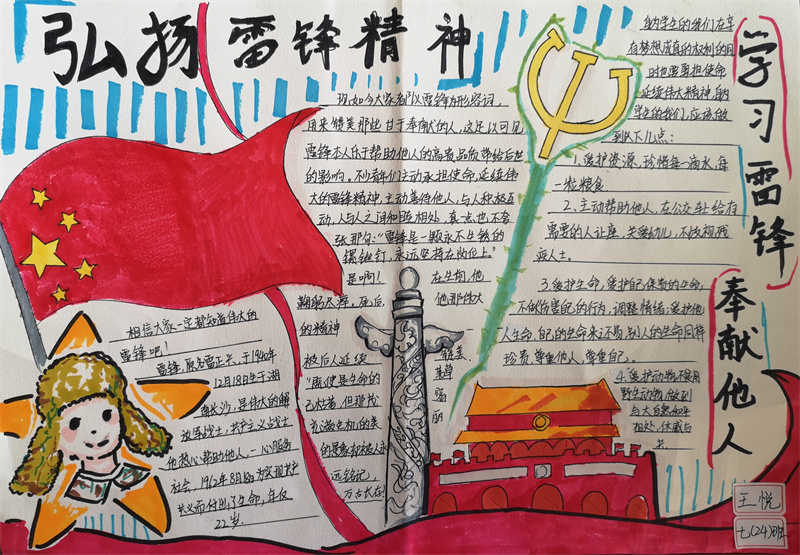 弘扬雷锋精神
学习雷锋
奉献他人
现如今大家都以雷锋为形容词，
用来赞美那些甘于奉献的人，这足以可见
雷锋本人乐于帮助他人的高尚品质带给后世
的影响。不少青年们主动承担使命，延续伟
大的雷锋精神，主动善待他人，与人积极互
动，人与人之间和睦相处，真
雷锋是一颗永不生锈的
螺丝钉，永远坚持在岗位上。”
是啊！在生前，他
鞠躬尽瘁，死后他那伟大
的精神
被后人延续
生命的
远铭记，
万古长存！
相信大家一定都知道伟大的
雷锋吧！
雷锋，原名雷正兴，于1940年
12月18日生于湖
南长沙，是伟大的解
放军战士，共产主义战士
他热心帮助他人，一心服务
社会，1962年8月
共
义而付出了生命，年仅
22岁。
的我们在享
有梦想成真的权利的同
时也要肩担使命
延续伟大精神，
学生的我们，应该做
到以下几点：
1、爱护资源，珍惜每一滴水，每
一粒粮食
2、主动帮助他人，在公交车上给有
需要的人让座，关爱幼儿，不歧视残
疾人士。
3、爱护生命，爱护自己
不做伤害自己的行为，调整情绪；爱护他
人生命，自己的生命来之不易，别人的生命同样
珍贵，尊重他人，尊重自己。
4、爱护动物，不食用
野生动物，做到
与大自然和平
相处，休戚与
共
王悦
七(24)班